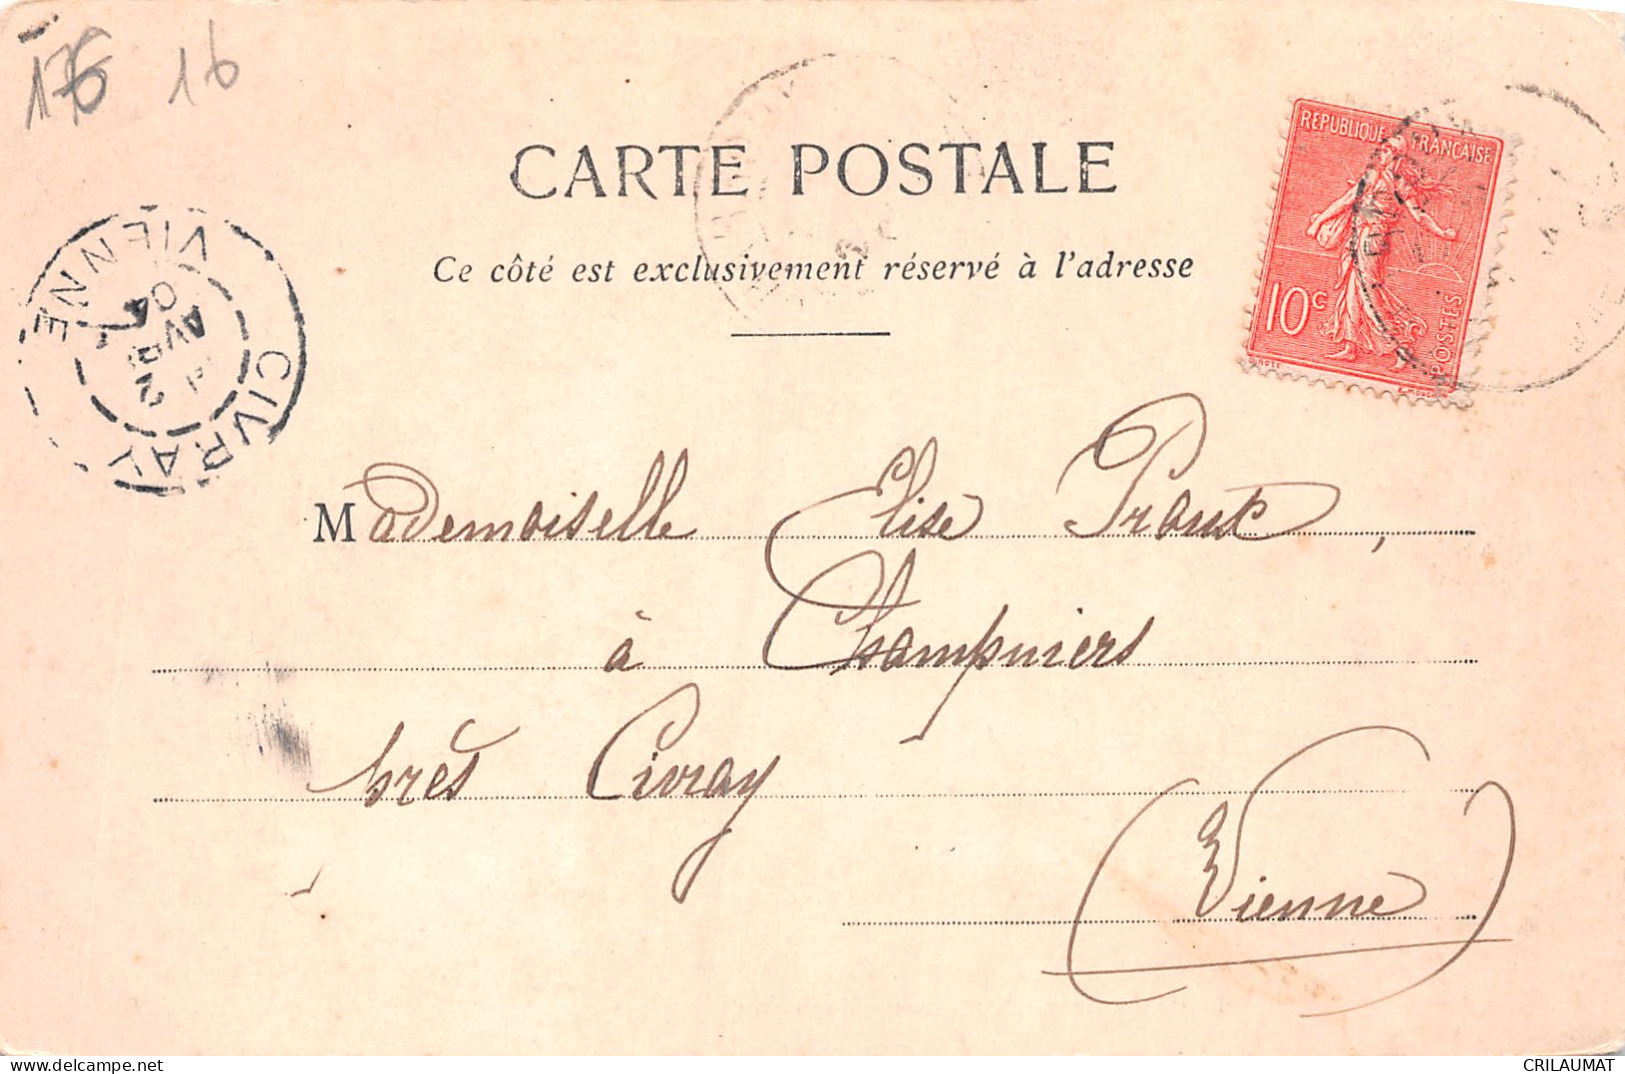 176 16
CARTE POSTALE
Ce côté est exclusivement réservé à l'adresse
REPUBLIQUE FRANÇAISE
10 c
POSTES
CIVRAY
VIENNE
2
AVRIL
04
Mademoiselle Elise Proux,
à Champniers
près Civray
(Vienne)
CRILAUMAT